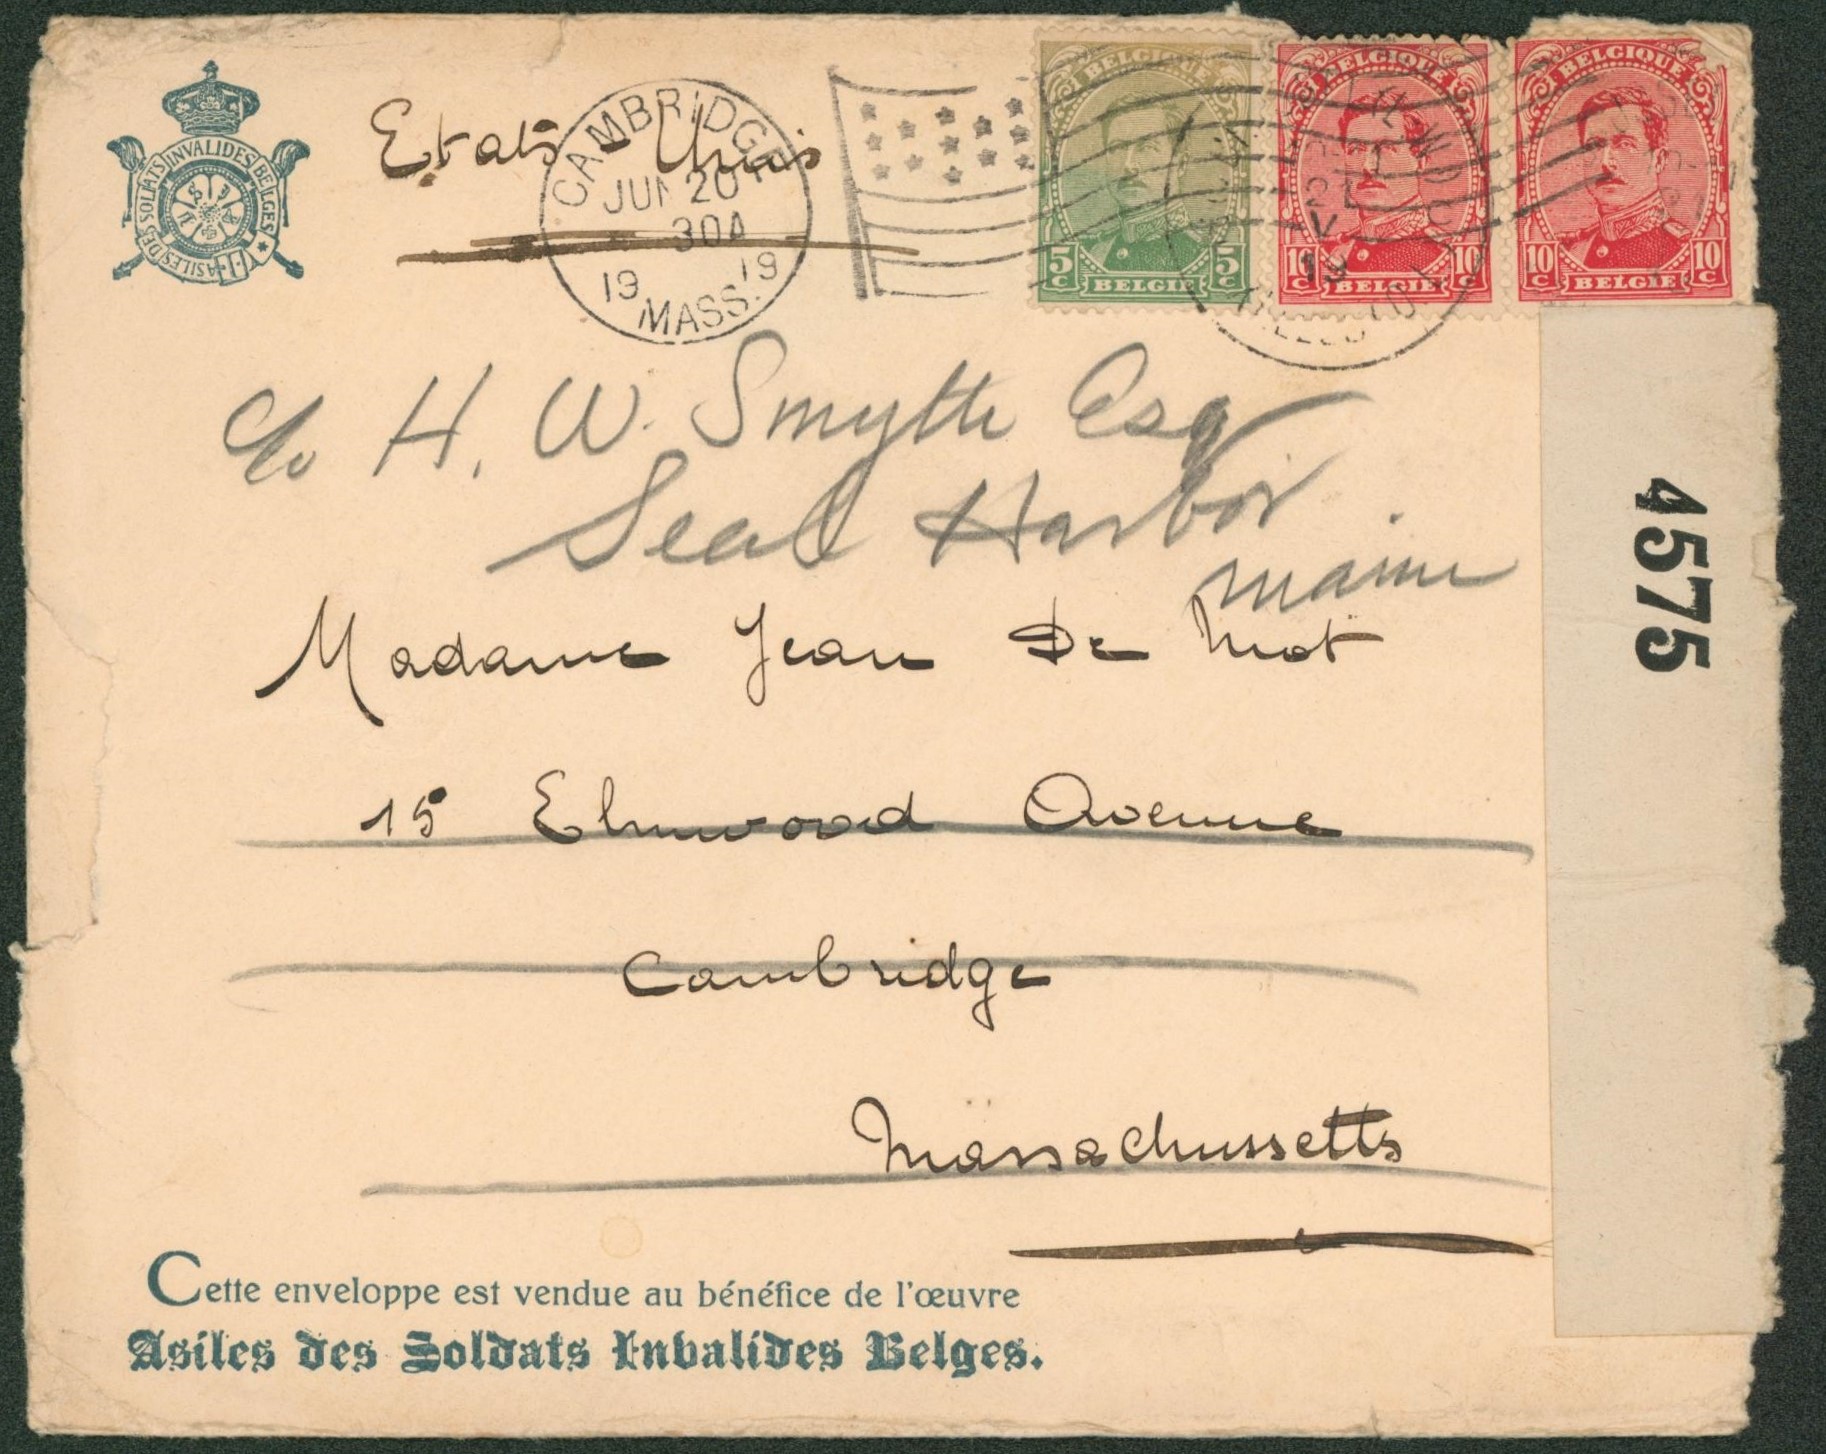 ASILES DES SOLDATS INVALIDES BELGES
Etats-Unis
CAMBRIDGE
JUN 20
30A
19 19
MASS.
BELGIQUE
5C 5C
BELGIE
BELGIQUE
10C 10C
BELGIE
BELGIQUE
10C 10C
BELGIE
19
c/o H. W. Smyth Esq
Seal Harbor
Maine
4575
Madame Jean De Mot
15 Elmwood Avenue
Cambridge
Massachussetts
Cette enveloppe est vendue au bénéfice de l'œuvre
Asiles des Soldats Invalides Belges.